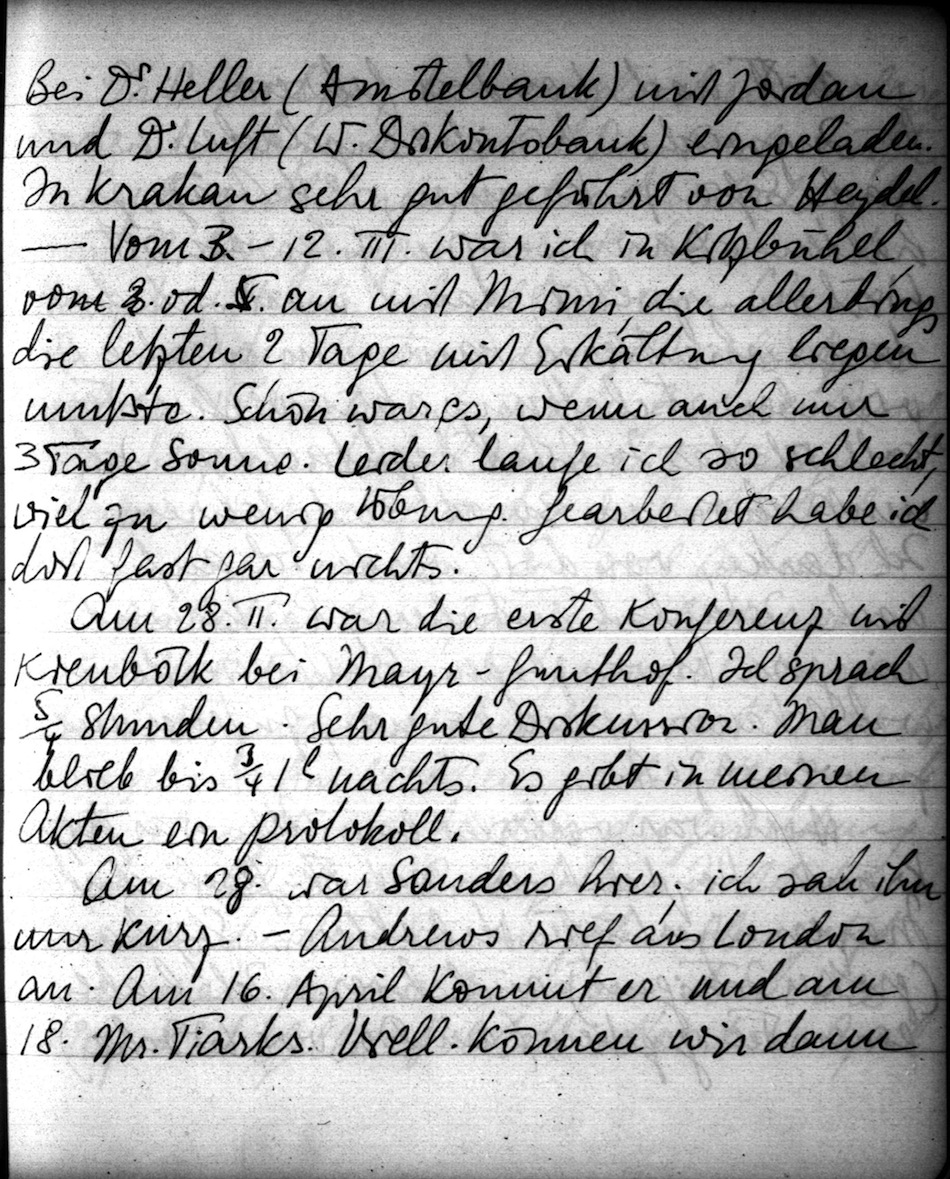 Bei Dr. Heller (Amstelbank) mit Jordan
und Dr. Luft (W. Diskontobank) eingeladen.
In Krakau sehr gut geführt von Heydel.
— Vom 3. – 12. III. war ich in Kitzbühel,
vom od. an mit Mimi, die allerdings
die letzten 2 Tage mit Erkältung liegen
mußte. Schön war es, wenn auch nur
3 Tage Sonne. Leider laufe ich so schlecht,
viel zu wenig Übung. Gearbeitet habe ich
dort fast gar nichts.
Am 28. II. war die erste Konferenz mit
Kienböck bei Mayr-Gunthof. Ich sprach
5/4 Stunden. Sehr gute Diskussion. Man
blieb bis 3/4 1h nachts. Es gibt in meinen
Akten ein Protokoll.
Am 29. war Sanders hier; ich sah ihn
nur kurz. – Andrews rief aus London
an. Am 16. April kommt er und am
18. Mr. Tiarks. Viell. können wir dann